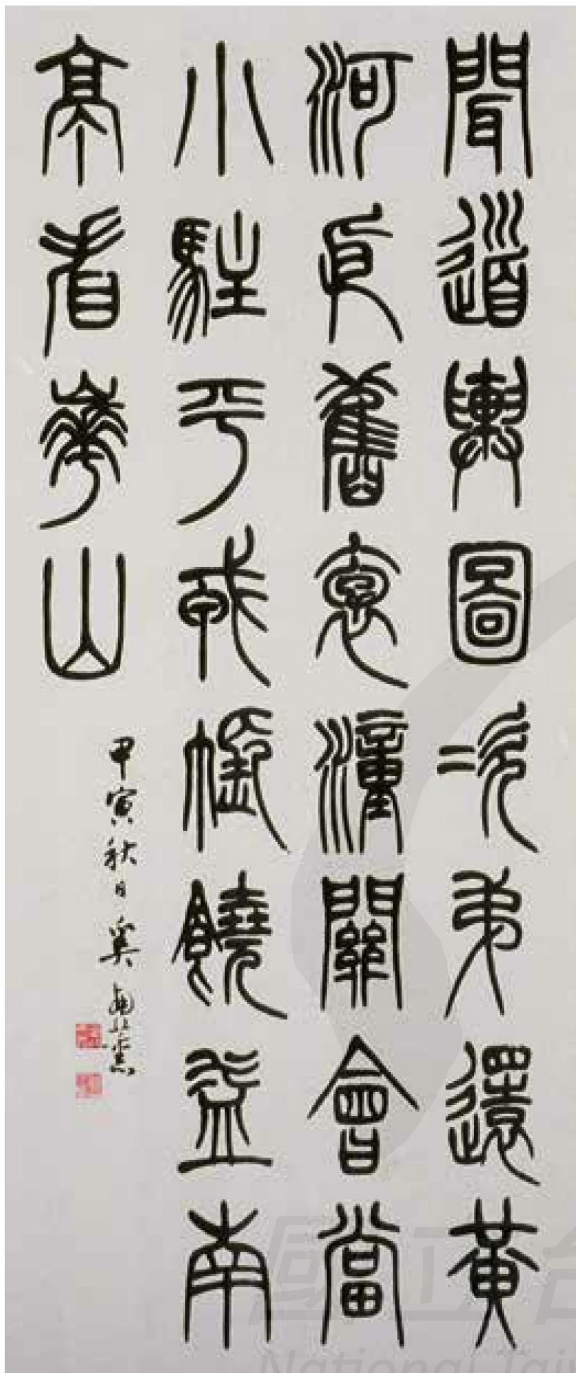 聞道輿圖次第還黃
河依舊抱潼關會當
小駐平戎帳饒益南
亭看華山
甲寅秋日奚南薰
國立
National Tai